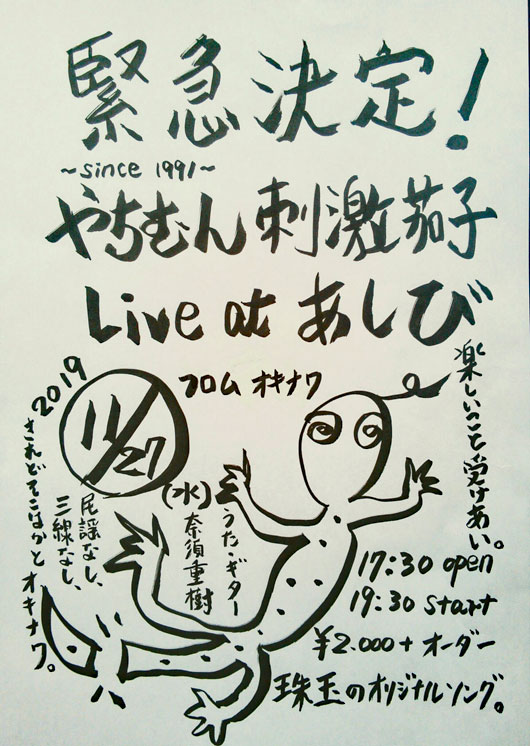 緊急決定!
~since 1991~
やちむん刺激茄子
Live at あしび
フロム オキナワ
2019
11/27
(水)
楽しいこと受けあい。
うた・ギター
奈須重樹
民謡なし、
三線なし、
されどそこはかとオキナワ。
17:30 open
19:30 start
¥2.000+オーダー
珠玉のオリジナルソング。